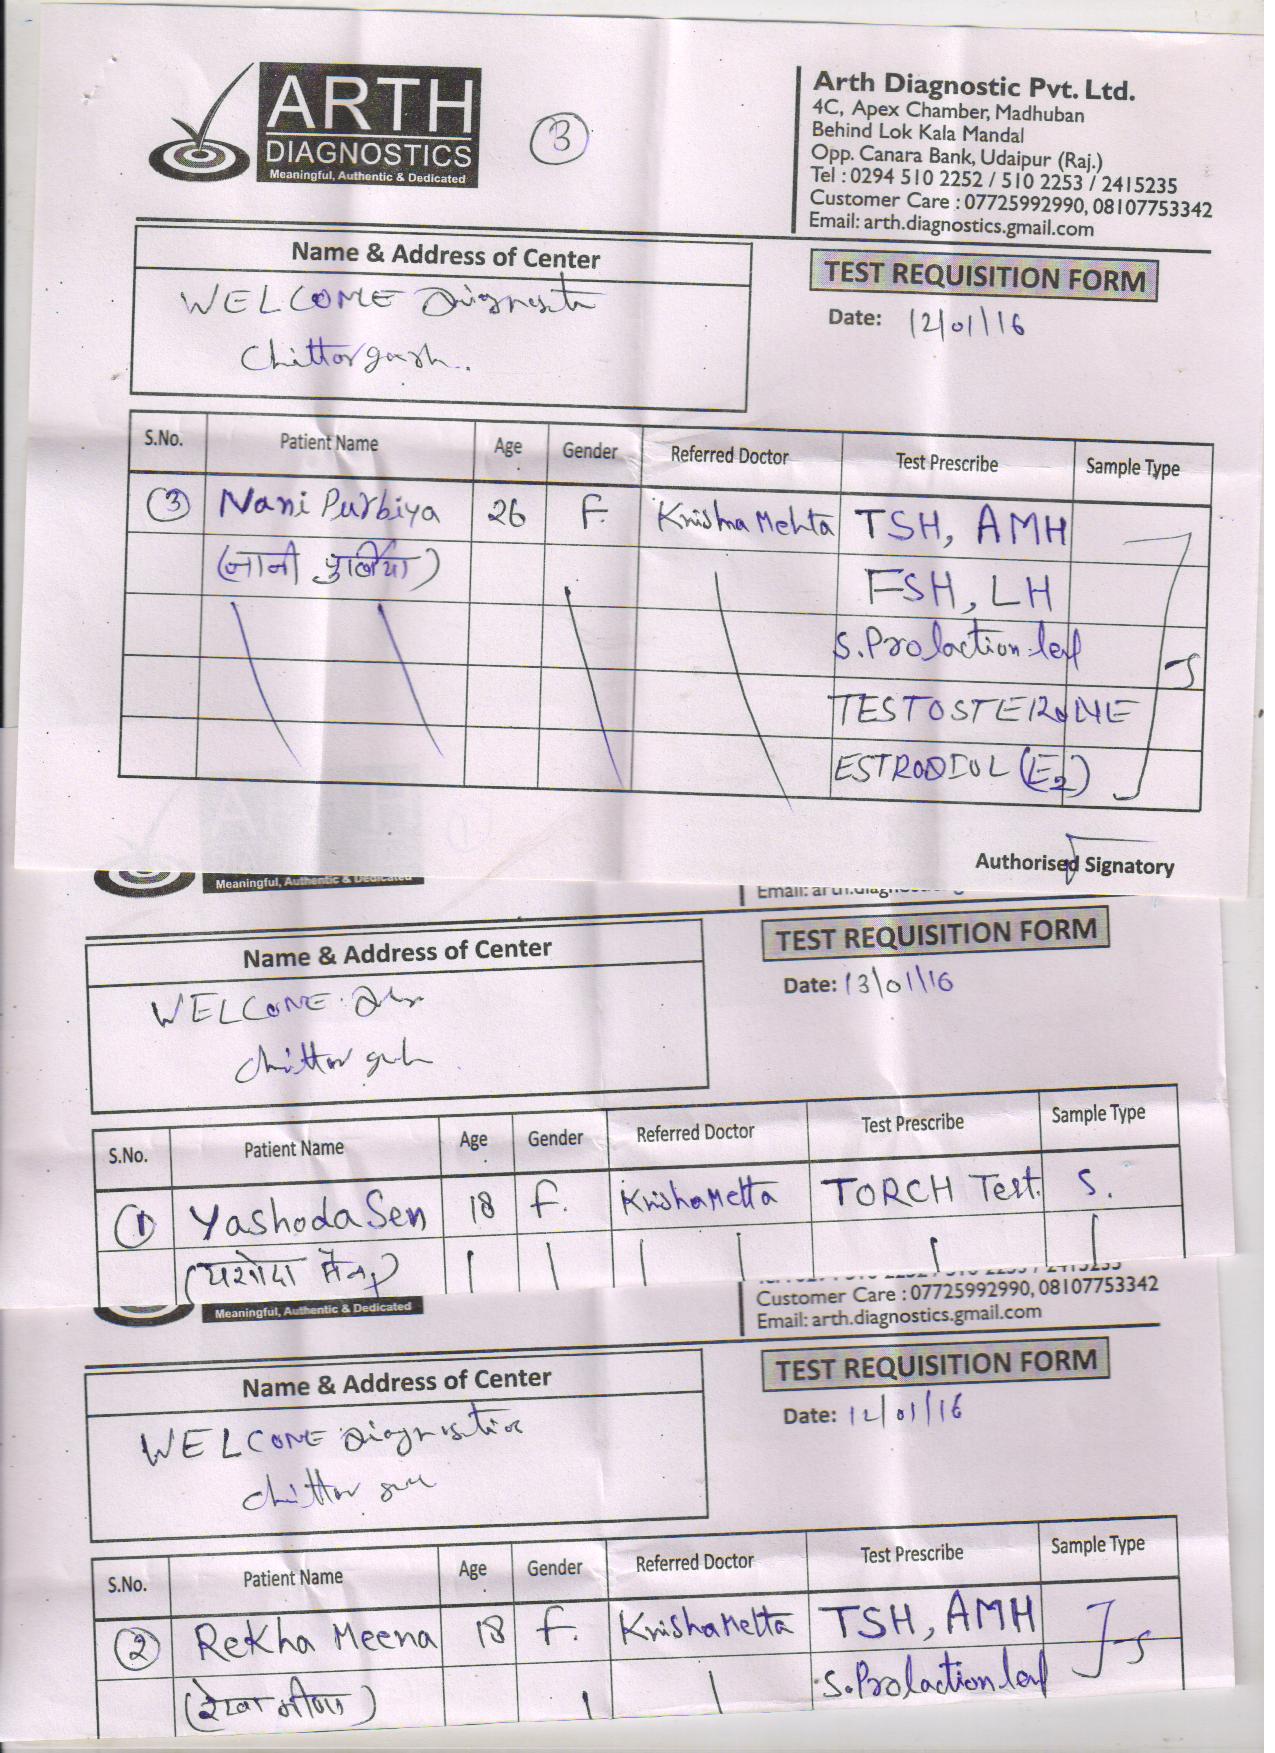 ARTH
DIAGNOSTICS
Meaningful, Authentic & Dedicated
3
Arth Diagnostic Pvt. Ltd.
4C, Apex Chamber, Madhuban
Behind Lok Kala Mandal
Opp. Canara Bank, Udaipur (Raj.)
Tel : 0294 510 2252 / 510 2253 / 2415235
Customer Care : 07725992990, 08107753342
Email: arth.diagnostics.gmail.com
Name & Address of Center
WELCOME
Chittorgarh.
TEST REQUISITION FORM
Date: 12/01/16
S.No. Patient Name Age Gender Referred Doctor Test Prescribe Sample Type
3 Nani Purbiya 26 F. Krishna Mehta TSH, AMH
(नानी पुर्बिया) FSH, LH
S. Prolaction S
TESTOSTERONE
(E2)
Authorised Signatory
Meaningful, Authentic & Dedicated
Name & Address of Center
WELCOME
TEST REQUISITION FORM
Date: 13/01/16
S.No. Patient Name Age Gender Referred Doctor Test Prescribe Sample Type
1 Yashoda Sen 18 F. Krisha Mehta TORCH Test. S.
(यशोदा सेन)
Meaningful, Authentic & Dedicated
Customer Care : 07725992990, 08107753342
Email: arth.diagnostics.gmail.com
Name & Address of Center
WELCOME
TEST REQUISITION FORM
Date: 12/01/16
S.No. Patient Name Age Gender Referred Doctor Test Prescribe Sample Type
2 Rekha Meena 18 F. Krisha Mehta TSH, AMH S
(रेखा मीणा) S. Prolaction